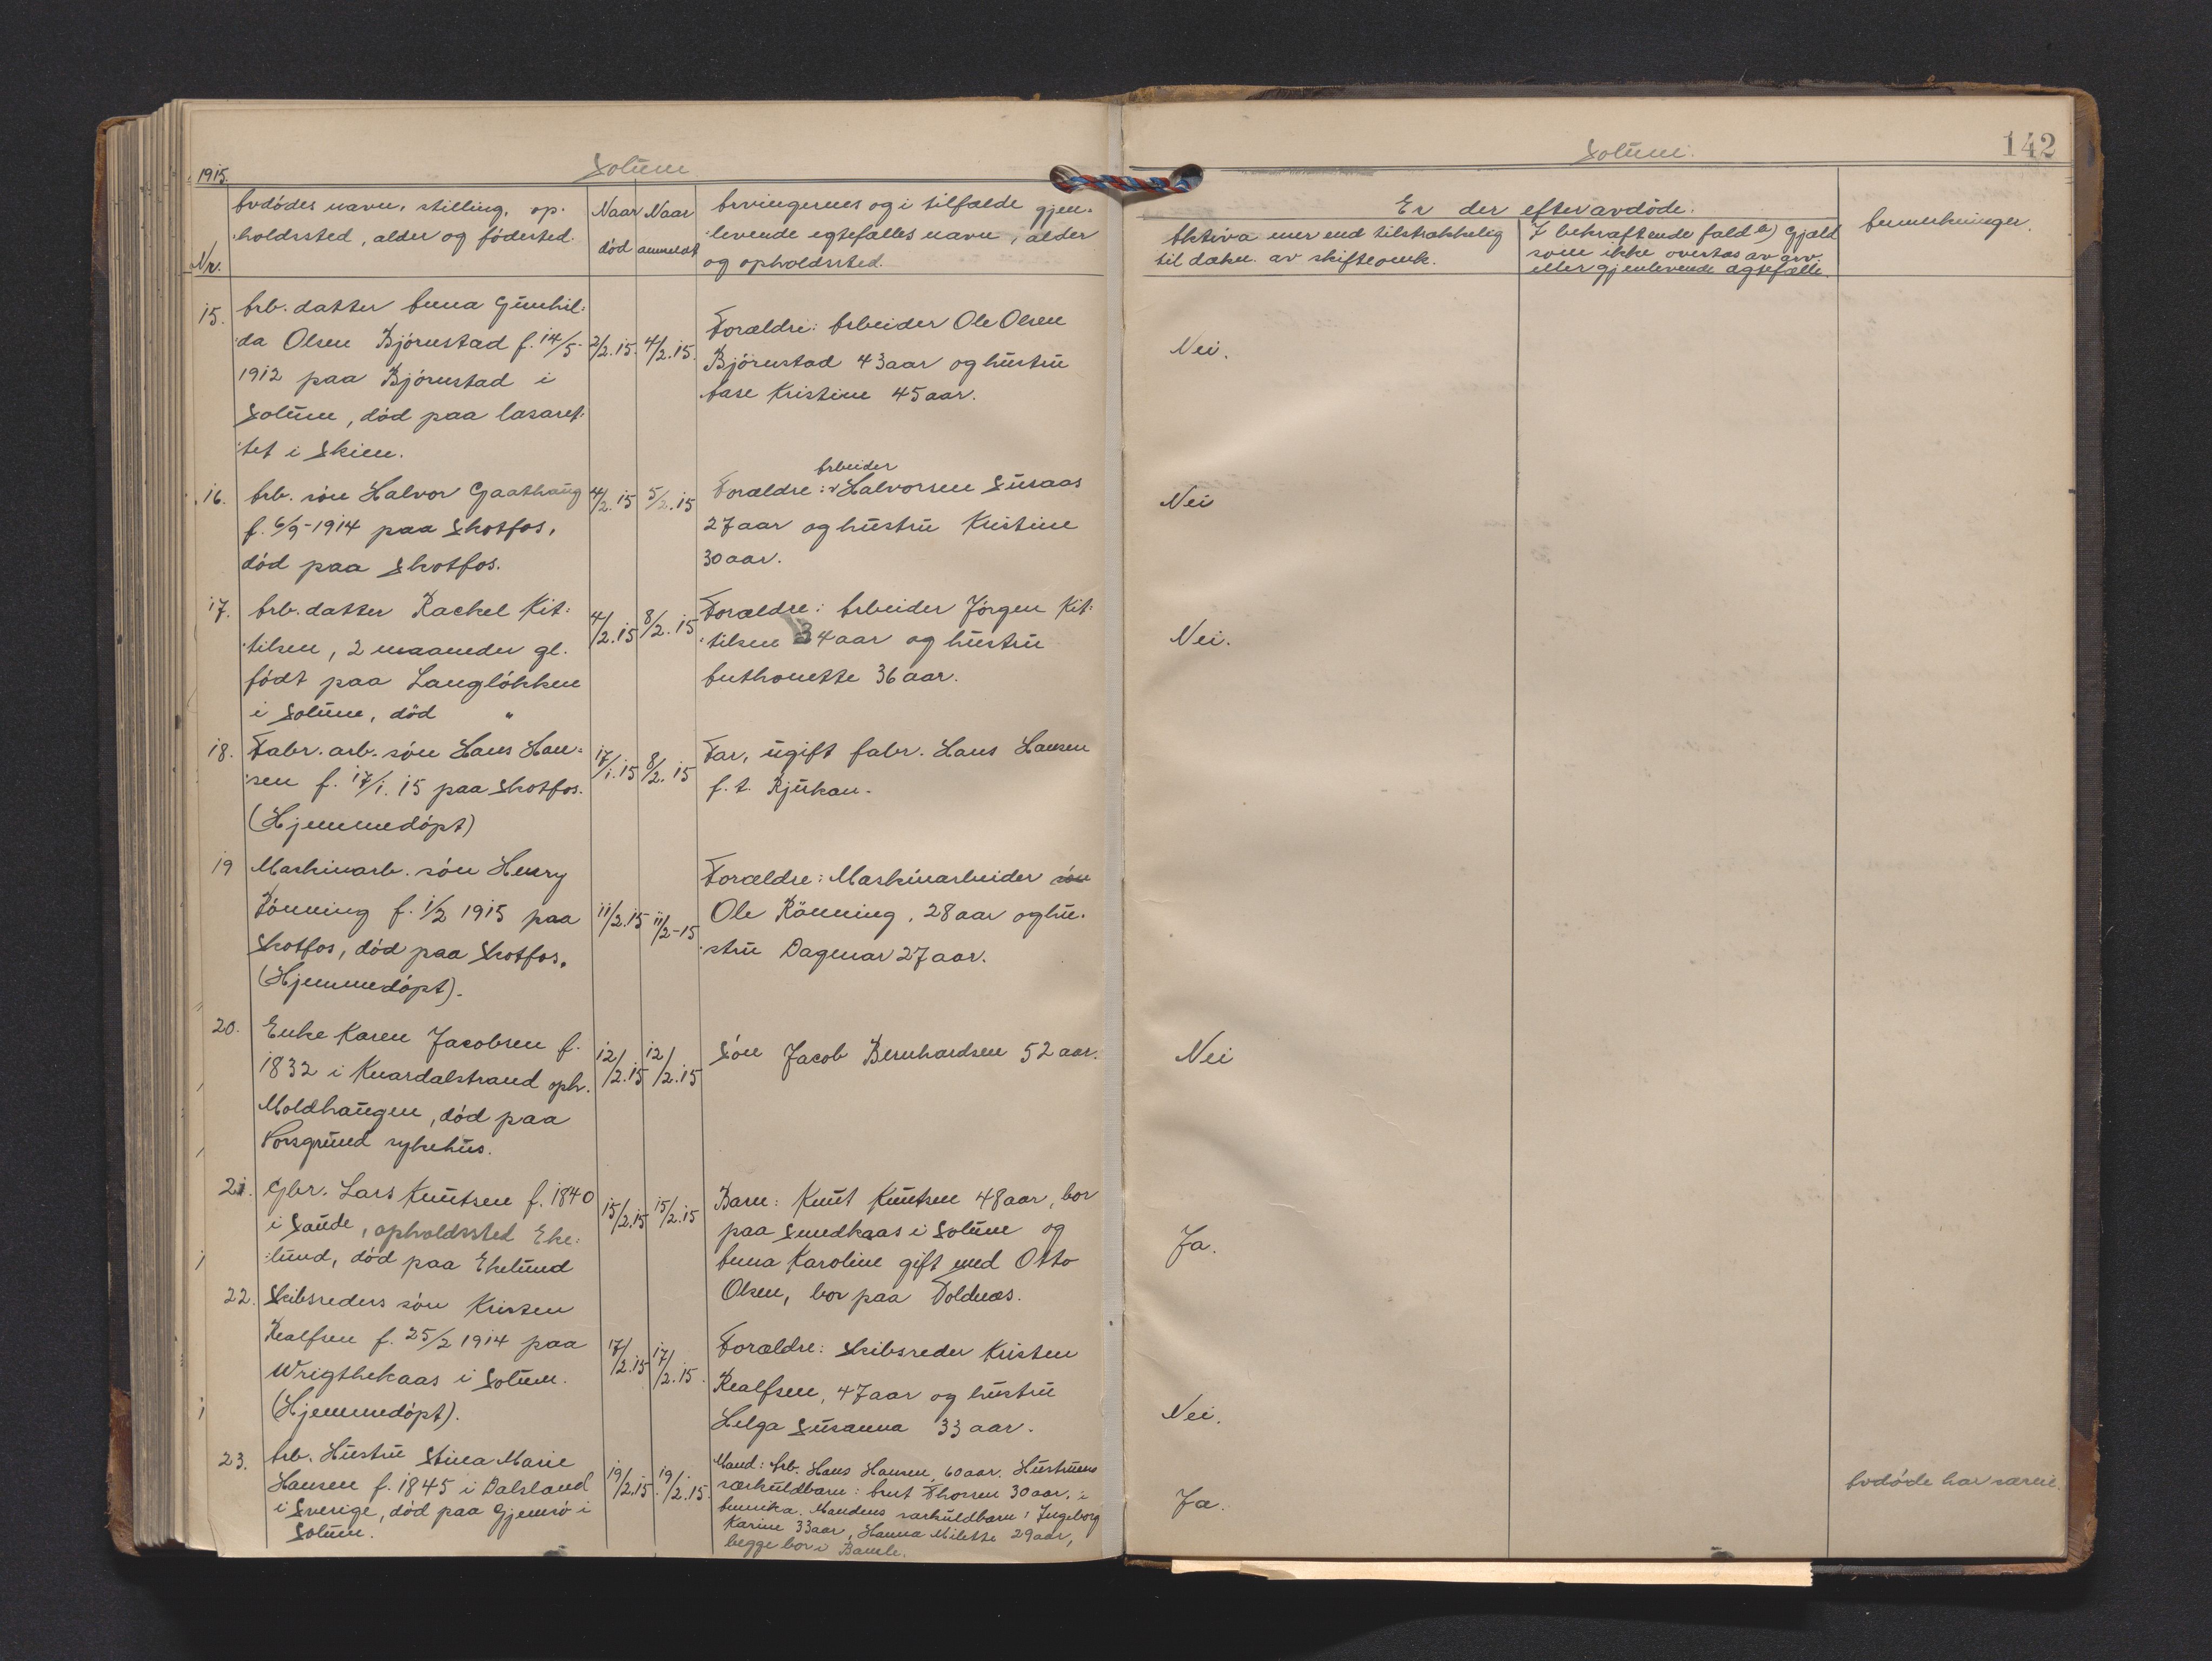 1915.
Solum
Nr.
Avdødes navn, stilling, op-
holdssted, alder og fødested.
Naar død
Naar anmeldt
Arvingernes og i tilfælde gjen-
levende egtefælles navn, alder
og opholdssted.
15.
Arb. datter Anna Gunhil-
da Olsen Bjørnstad f. 14/5-
1912 paa Bjørnstad i
Solum, død paa lasaret-
tet i Skien.
2/2.15.
4/2.15.
Forældre: Arbeider Ole Olsen
Bjørnstad 43 aar og hustru
Aase Kristine 45 aar.
16.
Arb. søn Halvor Gaathaug
f. 6/9-1914 paa Skotfos,
død paa Skotfos.
4/2.15
5/2.15
Arbeider
Forældre: Halvorsen Susaas
27 aar og hustru Kristine
30 aar.
17.
Arb. datter Rachel Kit-
tilsen, 2 maaneder gl.
født paa Langløkken
i Solum, død "
4/2.15
8/2.15
Forældre: Arbeider Jørgen Kit-
tilsen 34 aar og hustru
Anthonette 36 aar.
18.
Fabr. arb. søn Hans Han-
sen f. 17/1.15 paa Skotfos.
(Hjemmedøpt)
17/1.15
8/2.15
Far, ugift fabr. Hans Hansen
f. t. Rjukan.
19
Maskinarb. søn Henry
Rønning f. 1/2 1915 paa
Skotfos, død paa Skotfos.
(Hjemmedøpt).
11/2.15
11/2-15
Forældre: Maskinarbeider søn
Ole Rønning, 28 aar og hu-
stru Dagmar 27 aar.
20.
Enke Karen Jacobsen f.
1832 i Knardalstrand oph.
Moldhaugen, død paa
Porsgrund sykehus.
12/2.15
12/2.15
Søn Jacob Bernhardsen 52 aar.
21.
Gbr. Lars Knutsen f. 1840
i Saude, opholdssted Eke-
lund, død paa Ekelund
15/2.15
15/2.15
Barn: Knut Knutsen 48 aar, bor
paa Smedkaas i Solum og
Anna Karoline gift med Otto
Olsen, bor paa Toldnæs.
22.
Skibsreders søn Kristen
Realfsen f. 25/2 1914 paa
Wrigthekaas i Solum.
(Hjemmedøpt).
17/2.15
17/2.15.
Forældre: Skibsreder Kristen
Realfsen, 47 aar og hustru
Helga Susanna 33 aar.
23.
Arb. Hustru Stina Marie
Hansen f. 1845 i Dalsland
i Sverige, død paa Gjemsø i
Solum.
19/2.15.
19/2.15.
Mand: Arb. Hans Hansen, 60 aar. Hustruens
særkuldbarn: Arnt Thorsen 30 aar, i
Amerika. Mandens særkuldbarn: Ingeborg
Karine 33 aar, Hanna Milette 29 aar,
begge bor i Bamle.
142
Solum.
Er der efter avdøde.
Aktiva mer end tilstrækkelig
til dækn. av skifteomk.
I bekræftende fald a) Gjæld
som ikke overtas av arv.
eller gjenlevende ægtefælle.
Anmerkninger.
Nei.
Nei
Nei.
Nei
Ja.
Nei.
Ja.
Avdøde har særeie.